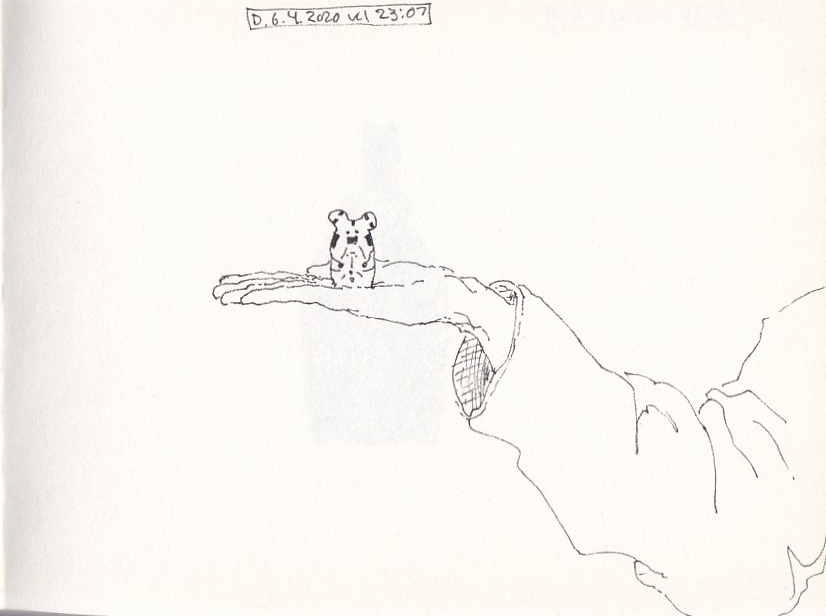 D. 6.4.2020 kl 23:07